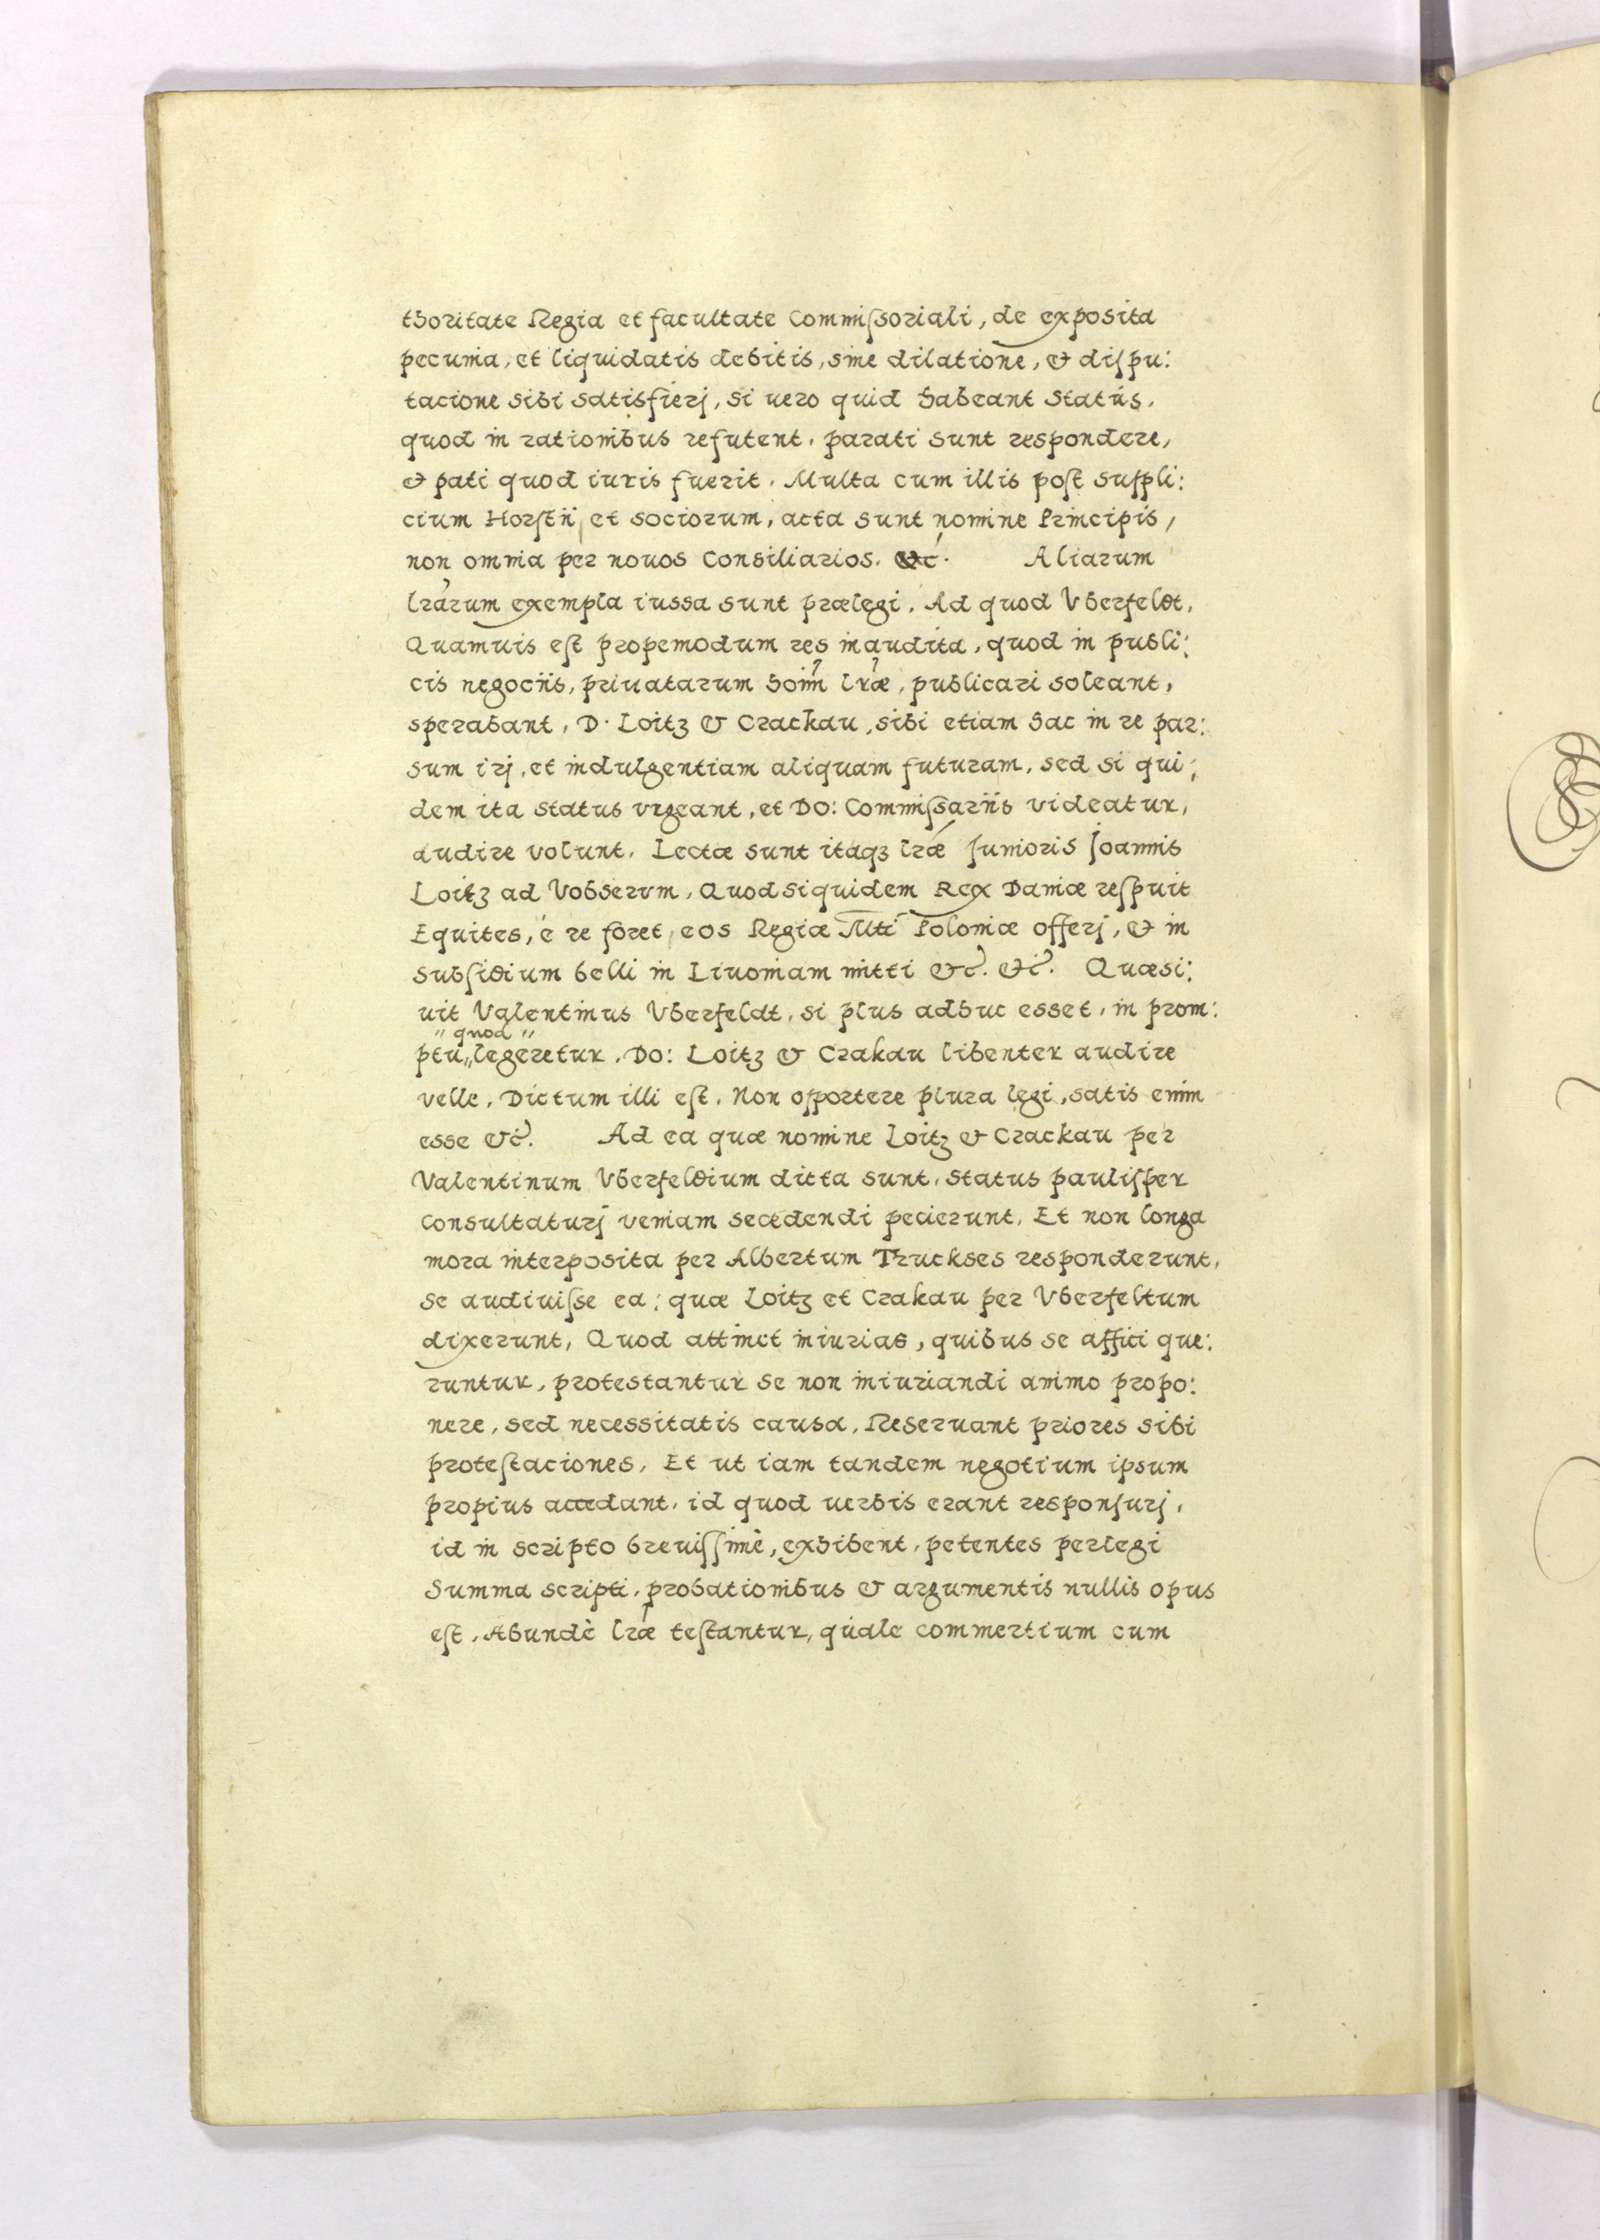 thoritate Regia et facultate Commißoriali, de exposita
pecunia, et liquidatis debitis, sine dilatione, & dispu:
tacione sibi satisfierj, si uero quid habeant Status,
quod in rationibus refutent, parati sunt respondere,
& pati quod iuris fuerit. Multa cum illis post suppli:
cium Horstii, et sociorum, acta sunt nomine Principis,
non omnia per nouos Consiliarios. &c. Aliarum
lrarum exempla iussa sunt prælegi. Ad quod Vberfeldt,
Quamuis est propemodum res inaudita, quod in publi:
cis negociis, priuatarum hoim lræ, publicari soleant,
sperabant, D. Loitz & Crackau, sibi etiam hac in re par:
sum irj, et indulgentiam aliquam futuram, sed si qui:
dem ita status vrgeant, et Do: Commißariis videatur,
audire volunt. Lectæ sunt itaqz lræ Junioris Joannis
Loitz ad Vobserum, Quod siquidem Rex Daniæ respuit
Equites, é re foret, eos Regiæ Mti Poloniæ offerj, & in
subsidium belli in Liuoniam mitti &c. &c. Quæsi:
uit Valentinus Vberfeldt, si plus adhuc esset, in prom:
" quod "
ptu,, legeretur. Do: Loitz & Crakau libenter audire
velle. Dictum illi est, Non opportere plura legi, satis enim
esse &c. Ad ea quæ nomine Loitz & Crackau per
Valentinum Vberfeldium dicta sunt, status paulisper
consultaturj veniam secedendi pecierunt. Et non longa
mora interposita per Albertum Truckses responderunt,
se audiuisse ea: quæ Loitz et Crakau per Vberfeltum
dixerunt, Quod attinet iniurias, quibus se affici que:
runtur, protestantur se non iniuriandi animo propo:
nere, sed necessitatis causa, Reseruant priores sibi
protestaciones, Et ut iam tandem negotium ipsum
propius accedant, id quod uerbis erant responsurj,
id in scripto breuissimè, exhibent, petentes perlegi
Summa scripti, probationibus & argumentis nullis opus
est, Abundè lræ testantur, quale commertium cum